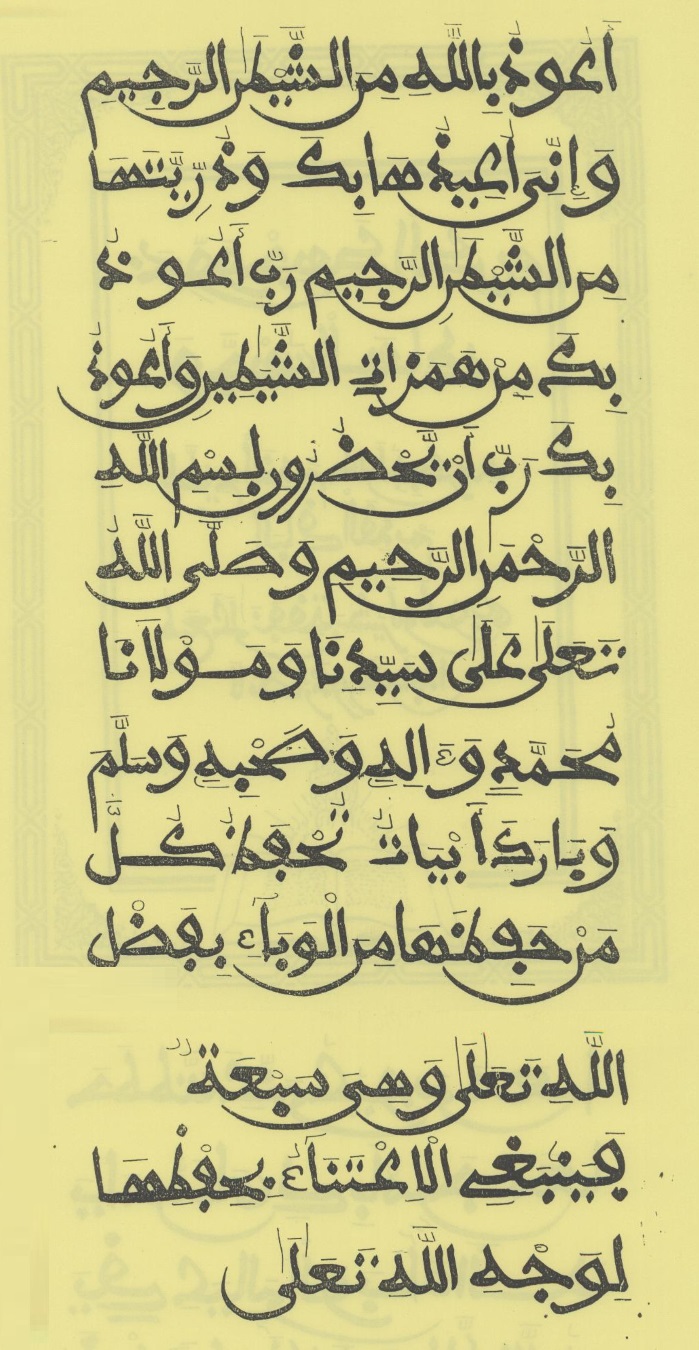 أَعُوذُ بِاللَّهِ مِنَ الشَّيْطَٰنِ الرَّجِيمِ
وَإِنِّىَ أُعِيذُهَا بِكَ وَذُرِّيَّتَهَا
مِنَ الشَّيْطَٰنِ الرَّجِيمِ رَّبِّ أَعُوذُ
بِكَ مِنْ هَمَزَاتِ الشَّيَٰطِينِ وَأَعُوذُ
بِكَ رَبِّ أَنْ يَّحْضُرُونِ بِسْمِ اللَّهِ
الرَّحْمَٰنِ الرَّحِيمِ وَصَلَّى اللَّهُ
تَعَلَىٰ عَلَىٰ سَيِّدِنَا وَمَوْلَانَا
مُحَمَّدٍ وَءَالِهِ وَصَحْبِهِ وَسَلَّمَ
وَبَارَكَ أَبْيَاتٌ تَحْفَظُ كُلَّ
مَنْ حَفِظَهَا مِنَ الْوَبَآءِ بِفَضْلِ
اللَّهِ تَعَلَىٰ وَهِىَ سَبْعَةٌ
فَيَنْبَغِى الْاِعْتِنَآءُ بِحِفْظِهَا
لِوَجْهِ اللَّهِ تَعَلَىٰ